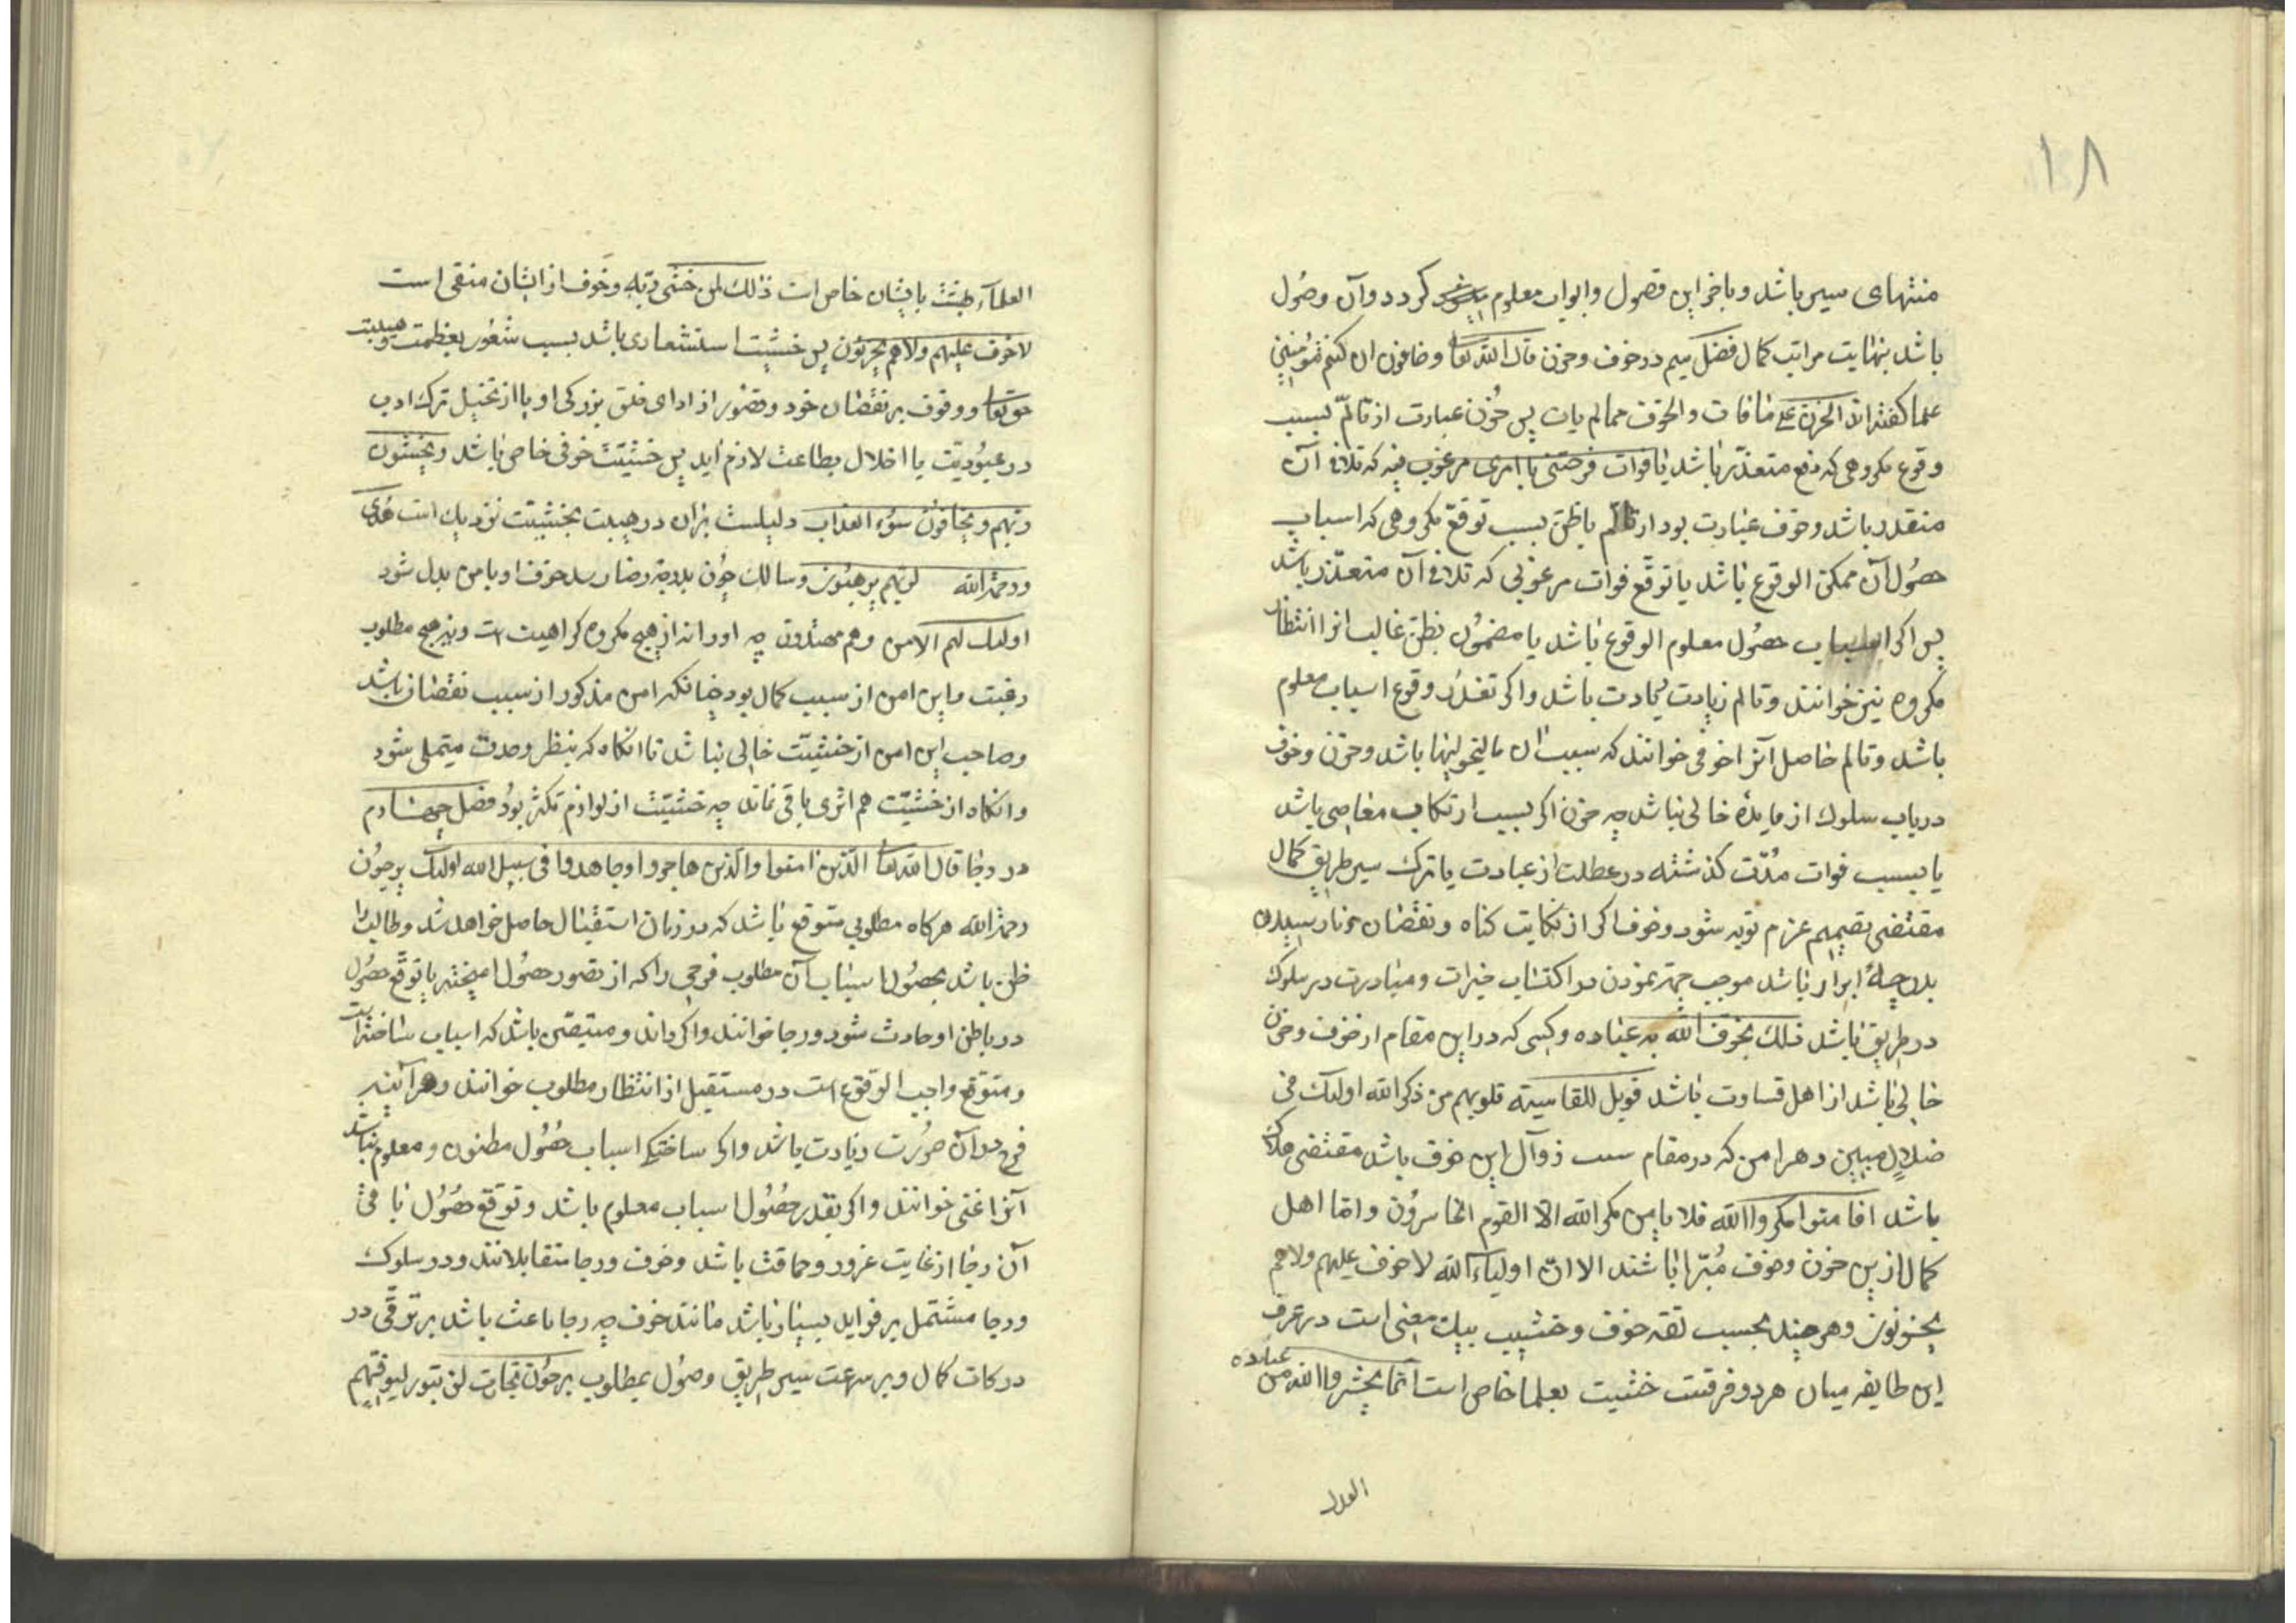 ۱۸
منتهای سیر باشد و باخر این فصول و ابواب معلوم کردد و آن وصُول
باشد بنهایت مراتب کمال فضل سیم در خوف و حزن قال الله تعا و خافون ان کنتم مُؤمنین
علما کفته اند الحزن علی مافات و الخوف مما لم یات پس حُزن عبارت از تالّم بسبب
وقوع مکروهی که دفع متعذّر باشد یا فوات فرصتی یا امری مرغوب فیه که تلافی آن
متعذر باشد و خوف عبارت بود از تالّم باطن بسبب توقع مکروهی که اسباب
حصُول آن ممکن الوقوع باشد یا توقّع فوات مرغوبی که تلافی آن متعذّر باشد
پس اکر اسباب حصُول معلوم الوقوع باشد یا مضمُون بظن غالب انرا انتظار
مکروه نیز خوانند و تالم زیادت باشد و اکر تعذر وقوع اسباب معلوم
باشد و تالم حاصل آنرا خوفی خوانند که سبب ان مالیخولیا باشد و حزن و خوف
در باب سلوک از فایده خالی نباشد چه حزن اکر بسبب ارتکاب معاصی باشد
یا بسبب فوات مُدّت کذشته در عطلت از عبادت یا ترک سیر طریق کمال
مقتضی تصمیم عزم توبه شود و خوف اکر از نکایت کناه و نقصان و نارسیدن
بدرجهٔ ابرار باشد موجب جهد نمودن در اکتساب خیرات و مبادرت در سلوک
در طریق باشد ذلک یخوف الله به عباده و کسی که در این مقام از خوف و حزن
خالی باشد از اهل قساوت باشد فویل للقاسیة قلوبهم من ذکر الله اولیک فی
ضلالٍ مبین و هر امن که در مقام سبب زوال این خوف باشد مقتضی هلاک
باشد افامنوا مکروا الله فلا یامن مکر الله الا القوم الخاسرُون و اما اهل
کمال از این حزن و خوف مُبّرا باشند الا انّ اولیاء الله لا خوف علیهم ولاهم
یحزنون و هر چند بحسب لغه خوف و خشیت بیک معنی است در عرف
این طایفه میان هر دو فرقست خشیت بعلما خاص است انما یخشی و الله من عباده
العلما
العلمآء خشیت بایشان خاص است ذلک لمن خشی ربّه و خوف از ایشان منفی است
لاخوف علیهم ولاهم یحزنون پس خشیت استشعاری باشد بسبب شعُور بعظمت و هیبت
حق تعا و وقوف بر نقصان خود و قصُور از ادای بزرکی او یا از تخیل ترک ادب
در عبُودیّت یا اخلال بطاعت لازم آید پس خشیّت خوفی خاص باشد و یخشون
ربّهم و یخافون سوُء العذاب دلیلست بران و رهبت بخشیت نزدیک است هُدی
و رحمة الله لربّهم یرهبُون و سالک چون بدرجهٔ رضا رسد خوف او بامن بدل شود
اولیک لهم الامن وهم مهتدون چه او را نه از هیچ مکروه کراهیت است و نه بهیچ مطلوب
رغبت و این امن از سبب کمال بود چنانکه امن مذکور از سبب نقصان باشد
و صاحب این امن از خشیّت خالی نباشد تا انکاه که بنظر وحدت متجلی شود
و انکاه از خشیّت هم اثری باقی نماند چه خشیّت از لوازم تکثّر بُود فصل چهارم
در رجا قال الله تعا الّذین امنوا والّذین هاجروا و جاهدوا فی سبیل الله اولیک یرجُون
رحمة الله هرکاه مطلوبی متوقع باشد که در زمان استقبال حاصل خواهد شد و طالب را
ظن باشد بحصُول اسباب آن مطلوب فرحی را که از تصور حصُول امیخته با توقع حصُول
در باطن او حادث شود و رجا خوانند و اکر داند و متیقّن باشد که اسباب ساخته است
و متوقع واجب الوقوع است در مستقبل از انتظار مطلوب خوانند و هر آینه
فرح در آن صوُرت زیادت باشد و اکر ساختکی اسباب حصُول مظنون و معلوم نباشد
آنرا تمنی خوانند و اکر تعذر حصُول اسباب معلوم باشد و توقع حصُول باقی
آن رجا از غایت غرور و حماقت باشد و خوف و رجا متقابلانند و در سلوک
و رجا مشتمل بر فواید بسیار باشد مانند خوف چه رجا باعث باشد بر توقّی در
درکات کمال و بر سرعت سیر طریق وصُول بمطلوب یرجُون تجارت لن تبور لیوفیهم